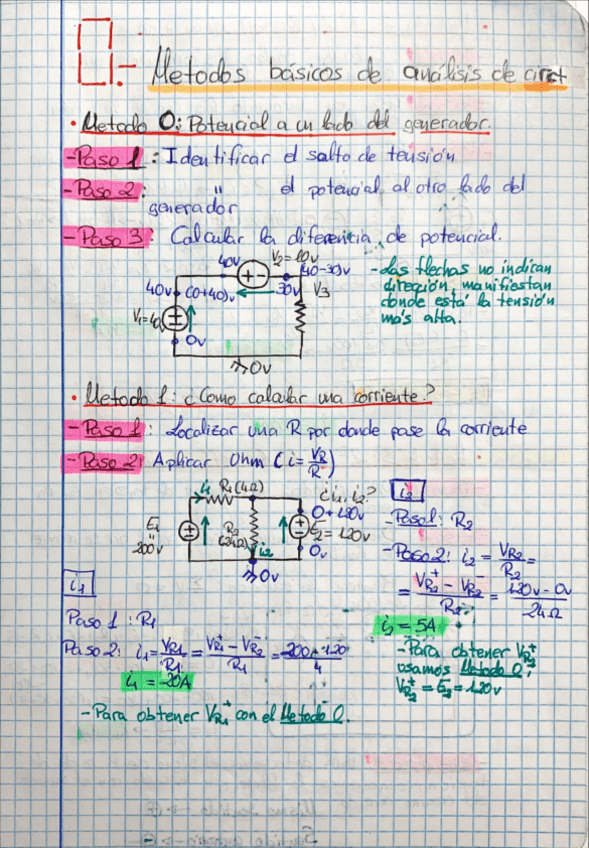 0.- Metodos básicos de análisis de circt
• Metodo 0: Potencial a un lado del generador.
-Paso 1: Identificar el salto de tensión
-Paso 2: " el potencial al otro lado del
generador
-Paso 3: Calcular la diferencia de potencial.
40v V2=10v (40-30)v
40v (0+40)v 30v V3
V1=40v
0v
0v
-Las flechas no indican
dirección, manifiestan
donde está la tensión
más alta.
• Metodo 1: ¿Como calcular una corriente?
-Paso 1: Localizar una R por donde pase la corriente
-Paso 2: Aplicar Ohm (i=VR/R)
i1 R1(4Ω) ¿i1, i2?
0+120v
E1 = 200v R2 (24Ω) i2 E2=120v
0v
0v
i2
-Paso 1: R2
-Paso 2: i2 = VR2/R2 =
= (VR2+ - VR2-)/R2 = (120v - 0v)/24Ω
i2 = 5A
-Para obtener VR2+
usamos Metodo 0;
VR2+ = E2 = 120v
i1
Paso 1: R1
Paso 2: i1 = VR1/R1 = (VR1+ - VR2-)/R1 = (200v-120)/4
i1 = 20A
-Para obtener VR1+ con el Metodo 0.